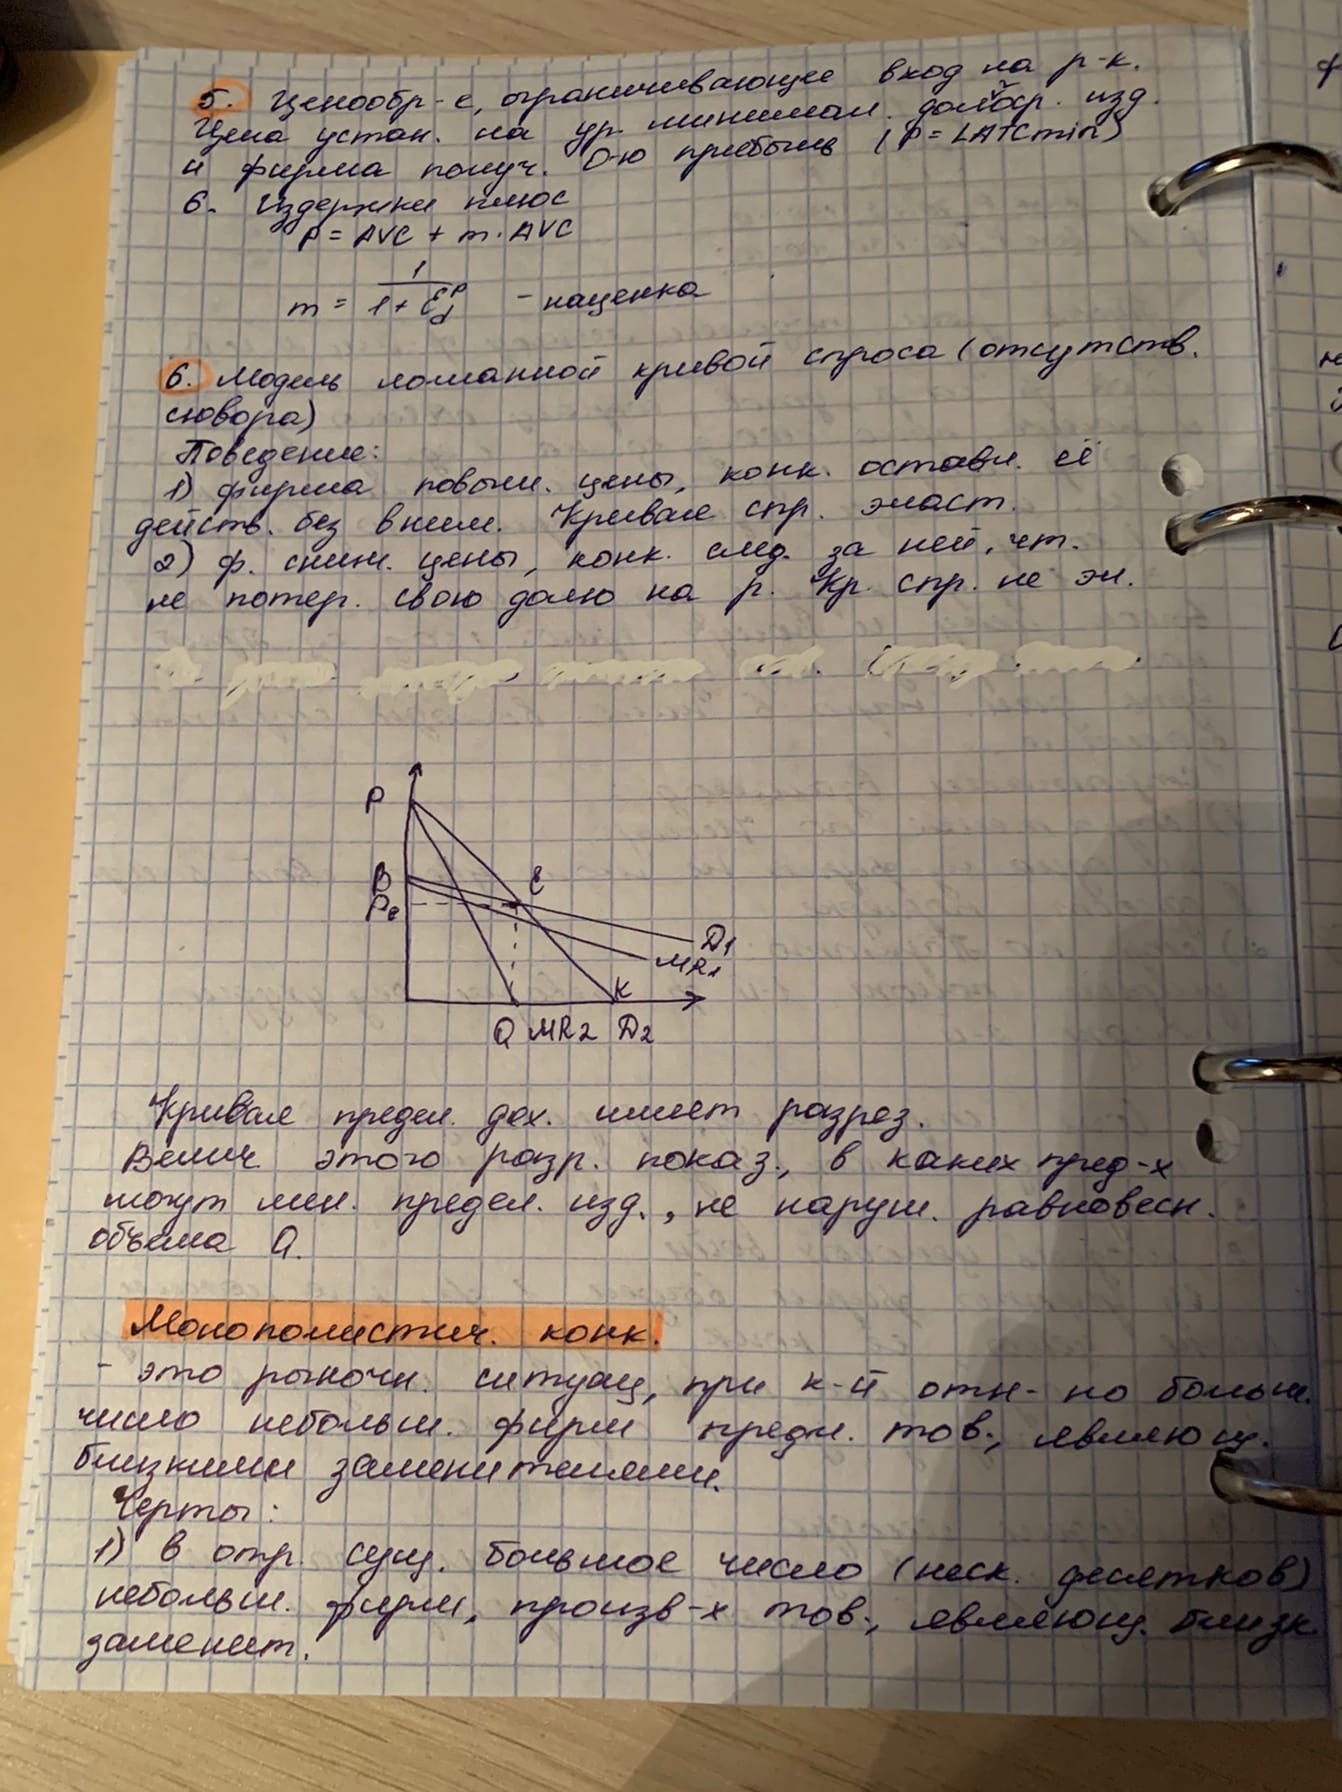 5. Ценообр-е, ограничивающее вход на р-к.
Цена устан. на ур. минимал. долгоср. изд.
и фирма получ. 0-ю прибыль (P = LATCmin)
6. Издержки плюс
P = AVC + m · AVC
m = 1 / (1 + Ɛdᵖ) - наценка
6. Модель ломанной кривой спроса (отсутств.
сговора)
Поведение:
1) фирма повыш. цены, конк. оставл. её
действ. без вним. Кривая спр. эласт.
2) ф. сниж. цены, конк. след. за ней, чт.
не потер. свою долю на р. Кр. спр. не эл.
P
B
E
Pe
D1
MR1
K
Q MR2 D2
Кривая предел. дох. имеет разрез.
Велич. этого разр. показ., в каких пред-х
могут мен. предел. изд., не наруш. равновесн.
объема Q.
Монополистич. конк.
- это рыночн. ситуац, при к-й отн-но больш.
число небольш. фирм предл. тов., являющ.
близкими заменителями.
Черты:
1) в отр. сущ. большое число (неск. десятков)
небольш. фирм, произв-х тов., являющ. близк.
заменит.